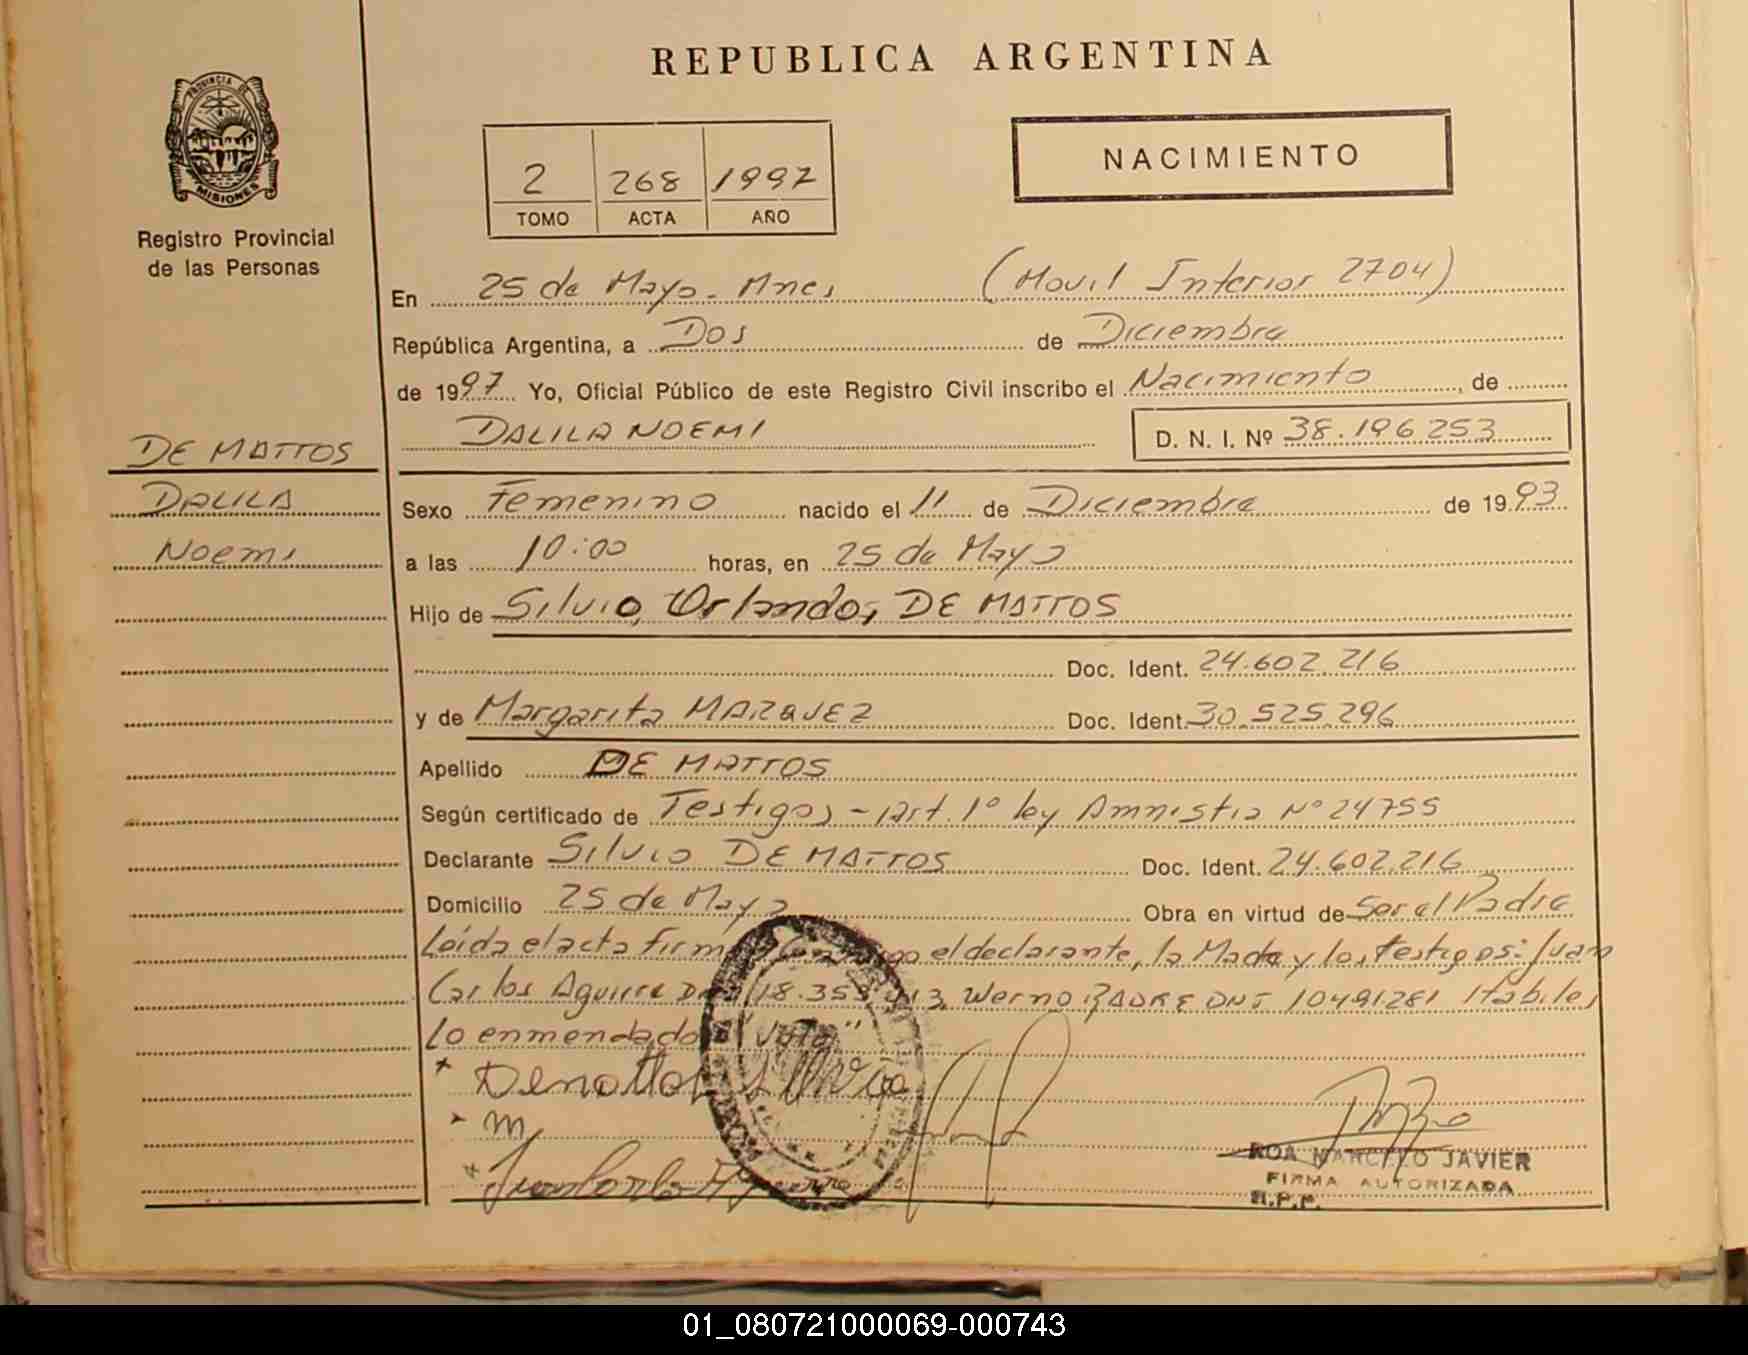 REPUBLICA ARGENTINA
PROVINCIA DE
MISIONES
Registro Provincial
de las Personas
2 268 1997
TOMO ACTA AÑO
NACIMIENTO
En 25 de Mayo - Mnes (Movil Interior 2704)
República Argentina, a Dos de Diciembre
de 1997 Yo, Oficial Público de este Registro Civil inscribo el Nacimiento, de
DALILA NOEMI D. N. I. Nº 38.196253
DE MATTOS
DALILA
Noemi
Sexo Femenino nacido el 11 de Diciembre de 1993
a las 10:00 horas, en 25 de Mayo
Hijo de Silvio, Orlando, DE MATTOS
Doc. Ident. 24.602.216
y de Margarita MARQUEZ Doc. Ident. 30.525.296
Apellido DE MATTOS
Según certificado de Testigos - Art. 1º ley Amnistia Nº 24755
Declarante Silvio DE MATTOS Doc. Ident. 24.602.216
Domicilio 25 de Mayo Obra en virtud de Ser el Padre
Leída el acta firma el declarante, la Madre y los testigos: Juan
Carlos Aguirre 18.353. Werno DNI 10491281 Habiles
Lo enmendado
Dematto Silvio
m
Juan Carlo Aguirre
ROA MARCELO JAVIER
FIRMA AUTORIZADA
R.P.P.
01_080721000069-000743